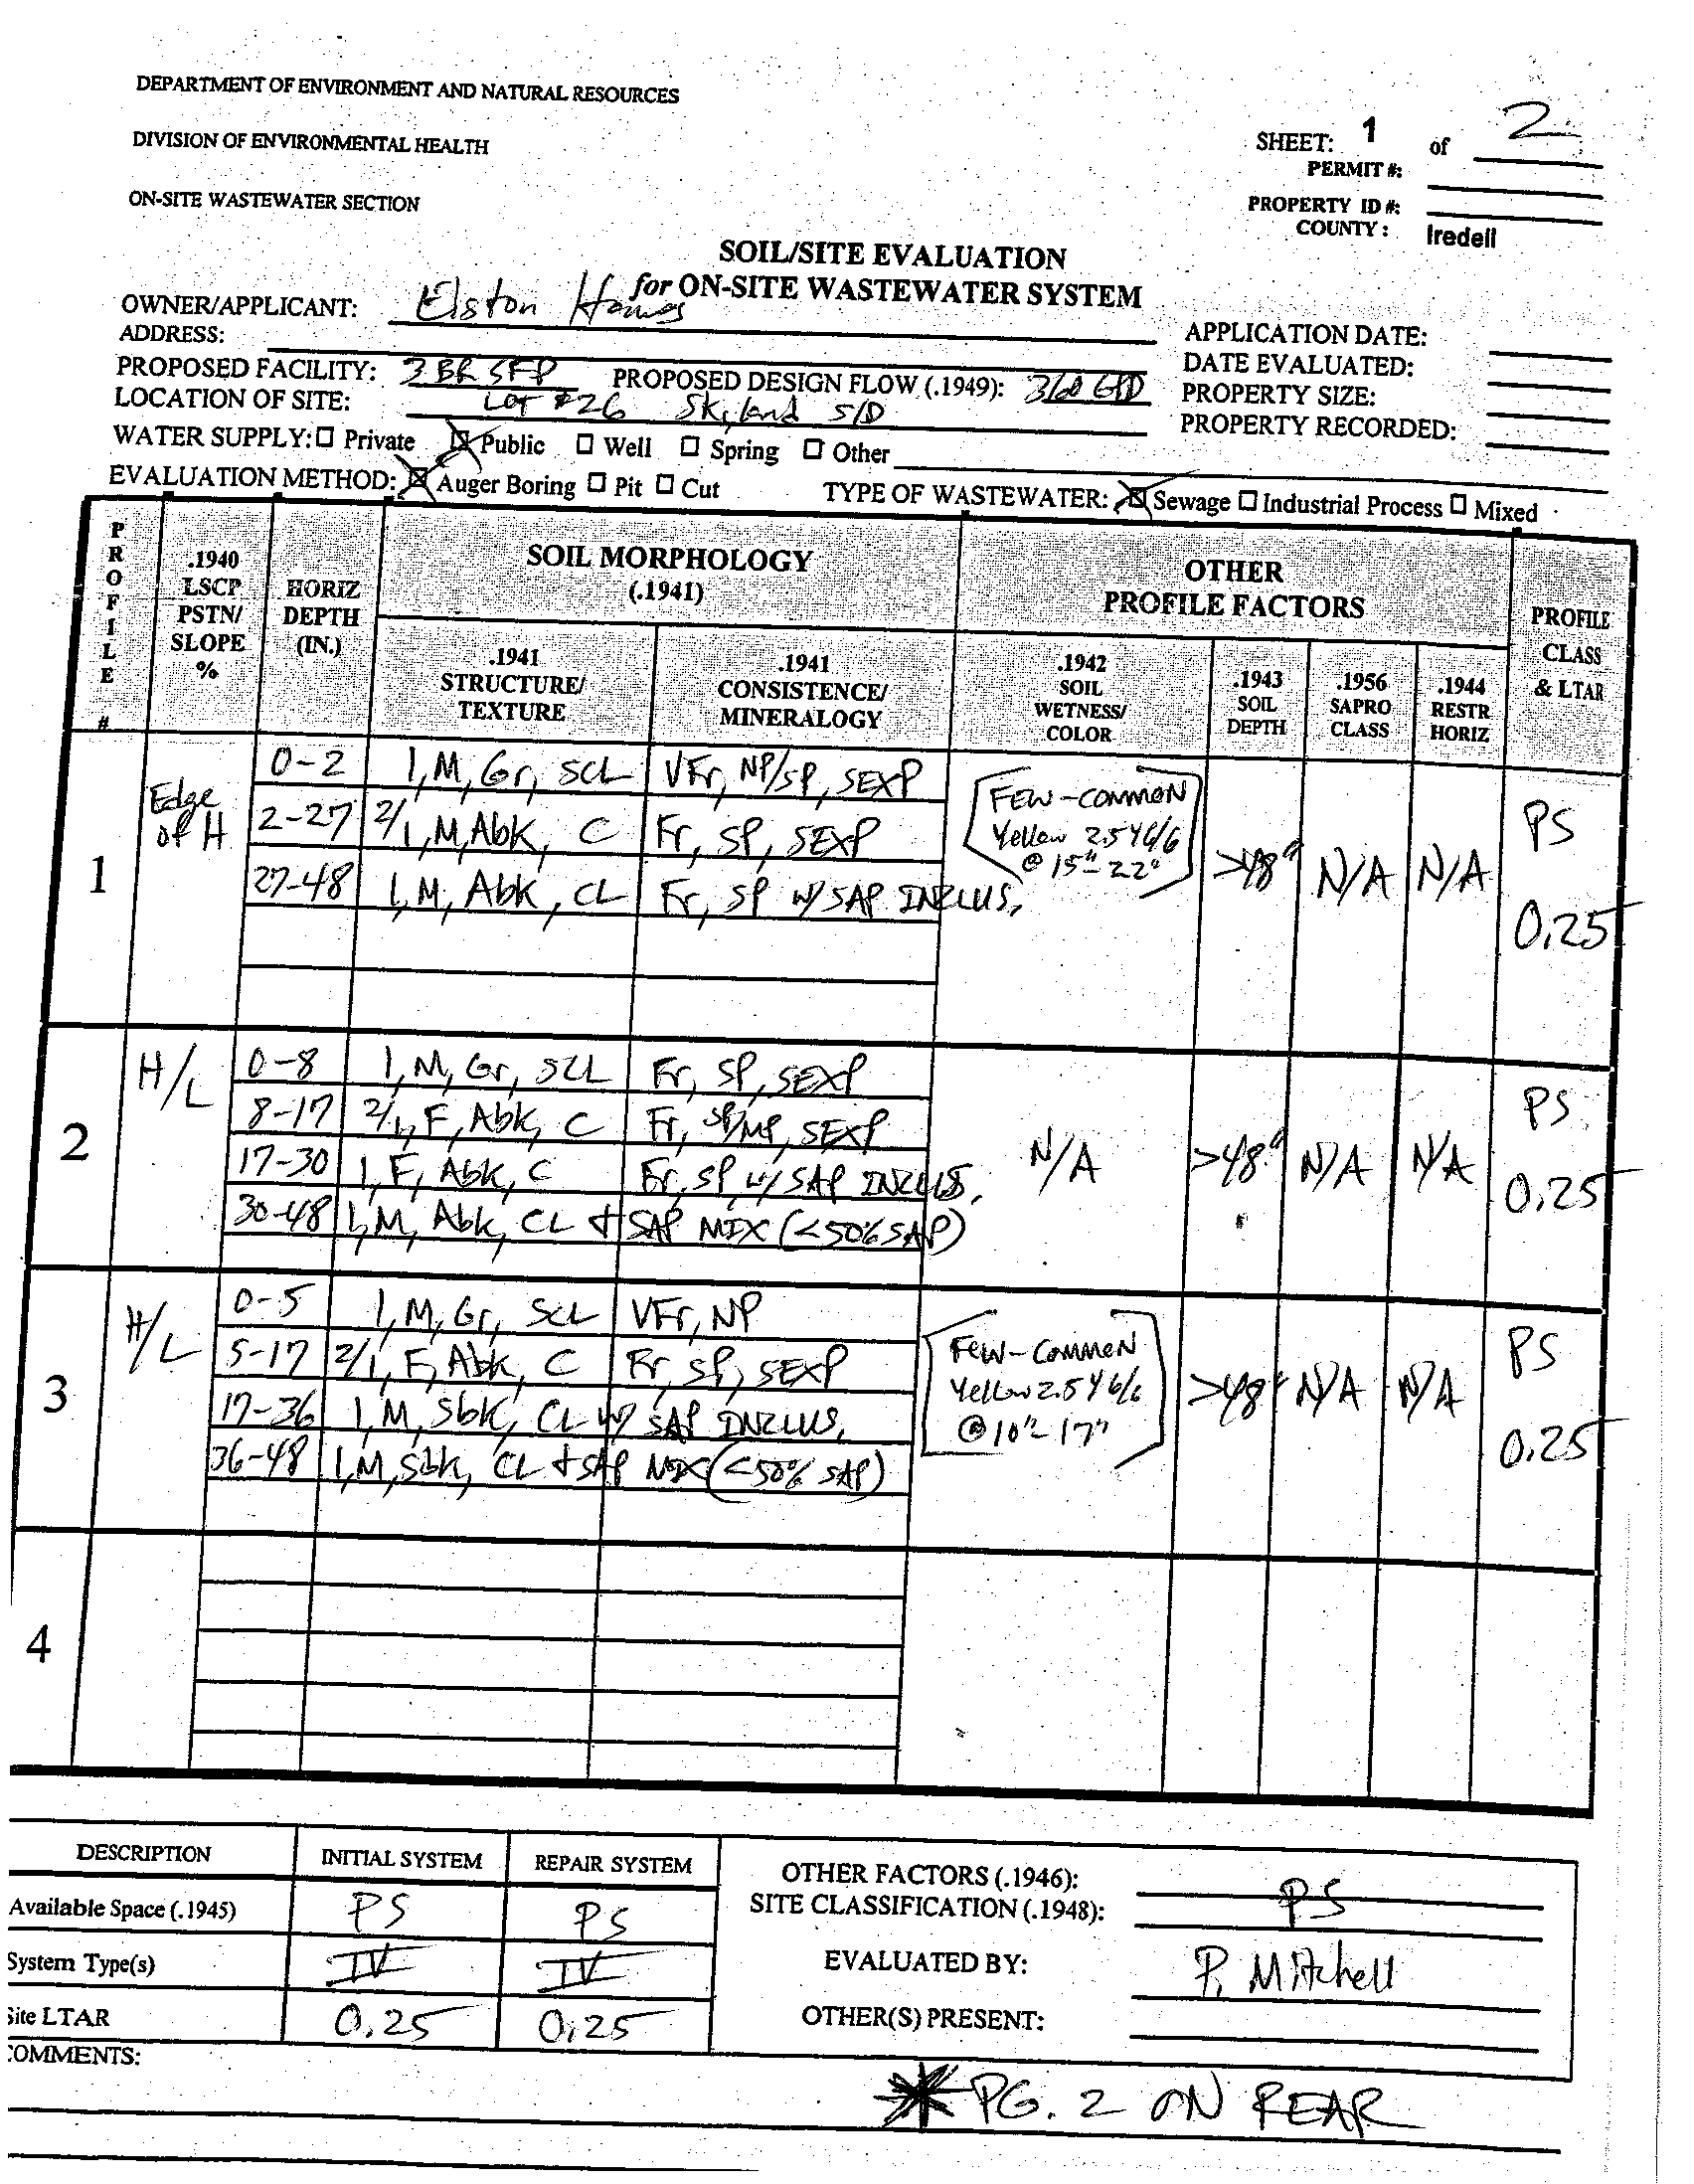 DEPARTMENT OF ENVIRONMENT AND NATURAL RESOURCES
DIVISION OF ENVIRONMENTAL HEALTH
ON-SITE WASTEWATER SECTION
SHEET: 1 of 2
PERMIT #:
PROPERTY ID #:
COUNTY: Iredell
SOIL/SITE EVALUATION
for ON-SITE WASTEWATER SYSTEM
OWNER/APPLICANT: Elston Homes
ADDRESS:
PROPOSED FACILITY: 3 BR SFD PROPOSED DESIGN FLOW (.1949): 360 GPD
LOCATION OF SITE: Lot #26 Skyland S/D
APPLICATION DATE:
DATE EVALUATED:
PROPERTY SIZE:
PROPERTY RECORDED:
WATER SUPPLY: Private Public Well Spring Other
EVALUATION METHOD: Auger Boring Pit Cut TYPE OF WASTEWATER: Sewage Industrial Process Mixed
PROFILE #
.1940 LSCP PSTN/ SLOPE %
HORIZ DEPTH (IN.)
SOIL MORPHOLOGY
(.1941)
.1941 STRUCTURE/ TEXTURE
.1941 CONSISTENCE/ MINERALOGY
OTHER
PROFILE FACTORS
.1942 SOIL WETNESS/ COLOR
.1943 SOIL DEPTH
.1956 SAPRO CLASS
.1944 RESTR HORIZ
PROFILE CLASS & LTAR
1
Edge of H
0-2 1, M, Gr, SCL VFr, NP/SP, SEXP
2-27 2/1, M, Abk, C Fr, SP, SEXP
27-48 1, M, Abk, CL Fr, SP w/ SAP INCLUS.
FEW-COMMON
Yellow 2.5Y6/6
@ 15"-22"
>48" N/A N/A
PS
0.25
2
H/L
0-8 1, M, Gr, SCL Fr, SP, SEXP
8-17 2/1, F, Abk, C Fr, SP/MP, SEXP
17-30 1, F, Abk, C Fr, SP, w/ SAP INCLUS.
30-48 1, M, Abk, CL + SAP MIX (<50% SAP)
N/A >48" N/A N/A
PS
0.25
3
H/L
0-5 1, M, Gr, SCL VFr, NP
5-17 2/1, F, Abk, C Fr, SP, SEXP
17-36 1, M, Sbk, CL w/ SAP INCLUS.
36-48 1, M, Sbk, CL + SAP MIX (<50% SAP)
FEW-COMMON
Yellow 2.5Y 6/6
@ 10"-17"
>48" N/A N/A
PS
0.25
4
DESCRIPTION INITIAL SYSTEM REPAIR SYSTEM
Available Space (.1945) PS PS
System Type(s) IV IV
Site LTAR 0.25 0.25
OTHER FACTORS (.1946):
SITE CLASSIFICATION (.1948): PS
EVALUATED BY: P. Mitchell
OTHER(S) PRESENT:
COMMENTS:
* PG. 2 ON REAR